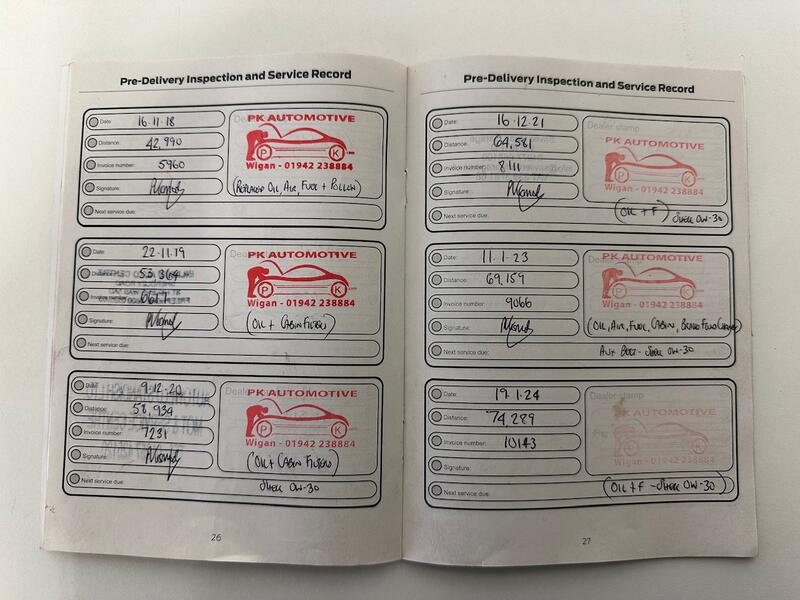 Pre-Delivery Inspection and Service Record
Date: 16.11.18
Distance: 42,990
Invoice number: 5960
Signature:
Next service due:
Dealer stamp
PK AUTOMOTIVE
P K
Wigan - 01942 238884
(REPLACED OIL, AIR, FUEL + POLLEN)
Date: 22.11.19
Distance: 53,364
Invoice
Signature:
Next service due:
PK AUTOMOTIVE
P K
Wigan - 01942 238884
(OIL + CABIN FILTER)
Date: 9.12.20
Distance: 58,934
Invoice number: 7231
Signature:
Next service due:
Dealer stamp
PK AUTOMOTIVE
P K
Wigan - 01942 238884
(OIL + CABIN FILTER)
SHELL 0W-30
26
Pre-Delivery Inspection and Service Record
Date: 16.12.21
Distance: 64,581
Invoice number: 8111
Signature:
Next service due:
Dealer stamp
PK AUTOMOTIVE
P K
Wigan - 01942 238884
(OIL + F) SHELL 0W-30
Date: 11.1.23
Distance: 69,159
Invoice number: 9066
Signature:
Next service due:
Dealer stamp
PK AUTOMOTIVE
P K
Wigan - 01942 238884
(OIL, AIR, FUEL, CABIN, BRAKE FLUID CHANGE)
AUX BELT - SHELL 0W-30
Date: 19.1.24
Distance: 74,289
Invoice number: 10143
Signature:
Next service due:
Dealer stamp
PK AUTOMOTIVE
P K
Wigan - 01942 238884
(OIL + F - SHELL 0W-30)
27